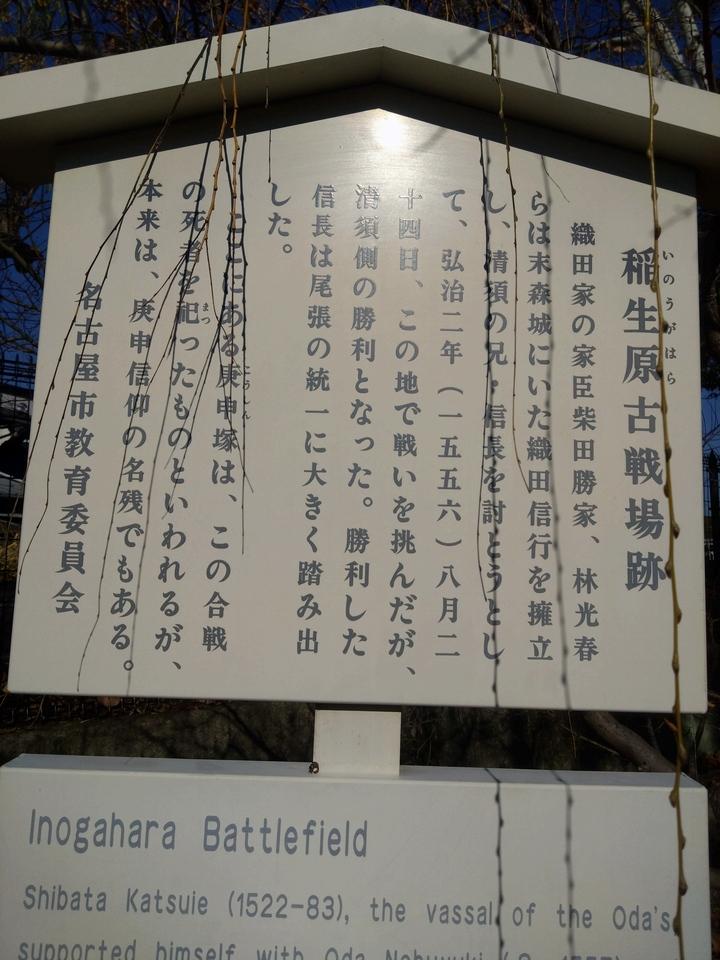 稲生原古戦場跡
いのうがはら
織田家の家臣柴田勝家、林光春
らは末森城にいた織田信行を擁立
し、清須の兄・信長を討とうとし
て、弘治二年(一五五六)八月二
十四日、この地で戦いを挑んだが、
清須側の勝利となった。勝利した
信長は尾張の統一に大きく踏み出
した。
ここにある庚申塚は、この合戦
こうしん
の死者を祀ったものといわれるが、
まつ
本来は、庚申信仰の名残でもある。
名古屋市教育委員会
Inogahara Battlefield
Shibata Katsuie (1522-83), the vassal of the Oda's,
supported himself with Oda Nobuyuki